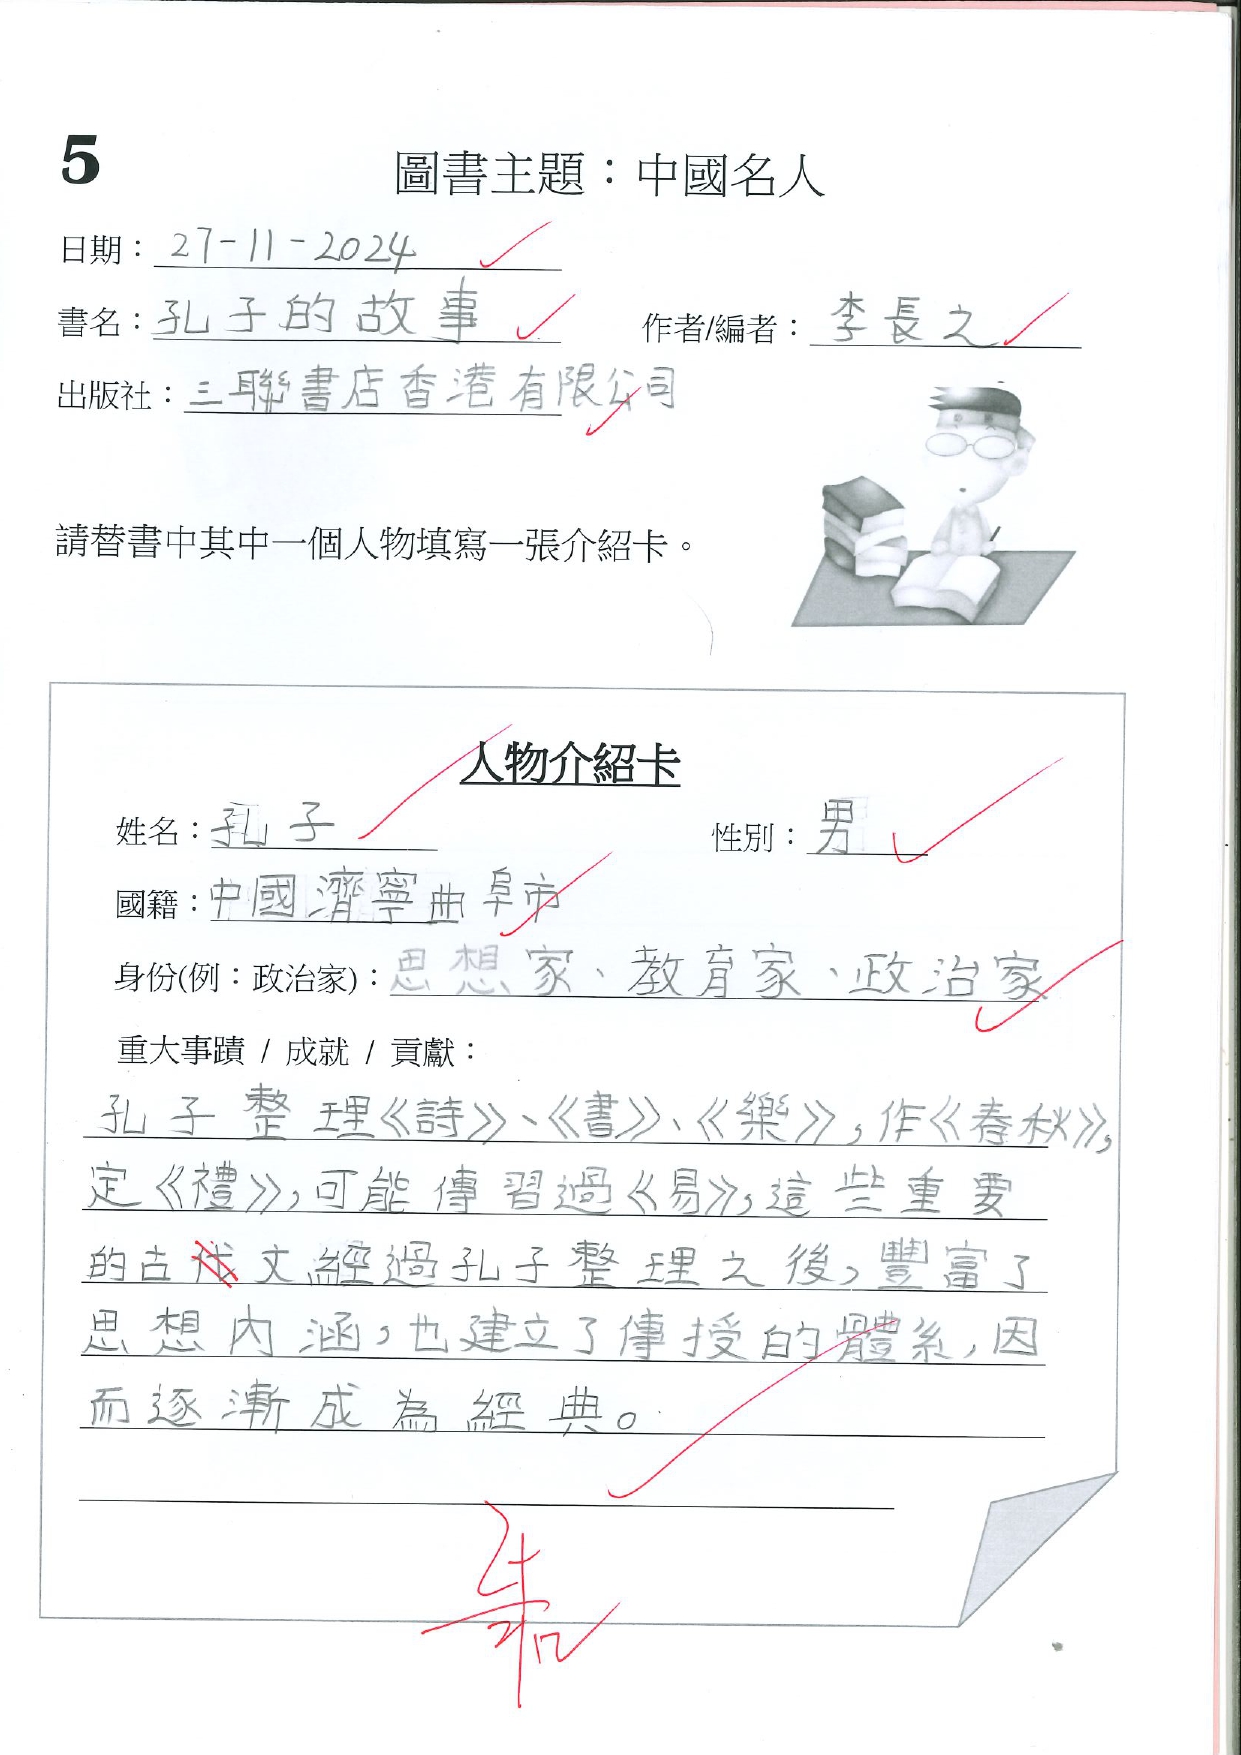 5
圖書主題：中國名人
日期：27-11-2024
書名：孔子的故事 作者/編者：李長之
出版社：三聯書店香港有限公司
請替書中其中一個人物填寫一張介紹卡。
人物介紹卡
姓名：孔子 性別：男
國籍：中國濟寧曲阜市
身份(例：政治家)：思想家、教育家、政治家
重大事蹟 / 成就 / 貢獻：
孔子整理《詩》、《書》、《樂》，作《春秋》，
定《禮》，可能傳習過《易》，這些重要
的古代文經過孔子整理之後，豐富了
思想內涵，也建立了傳授的體系，因
而逐漸成為經典。